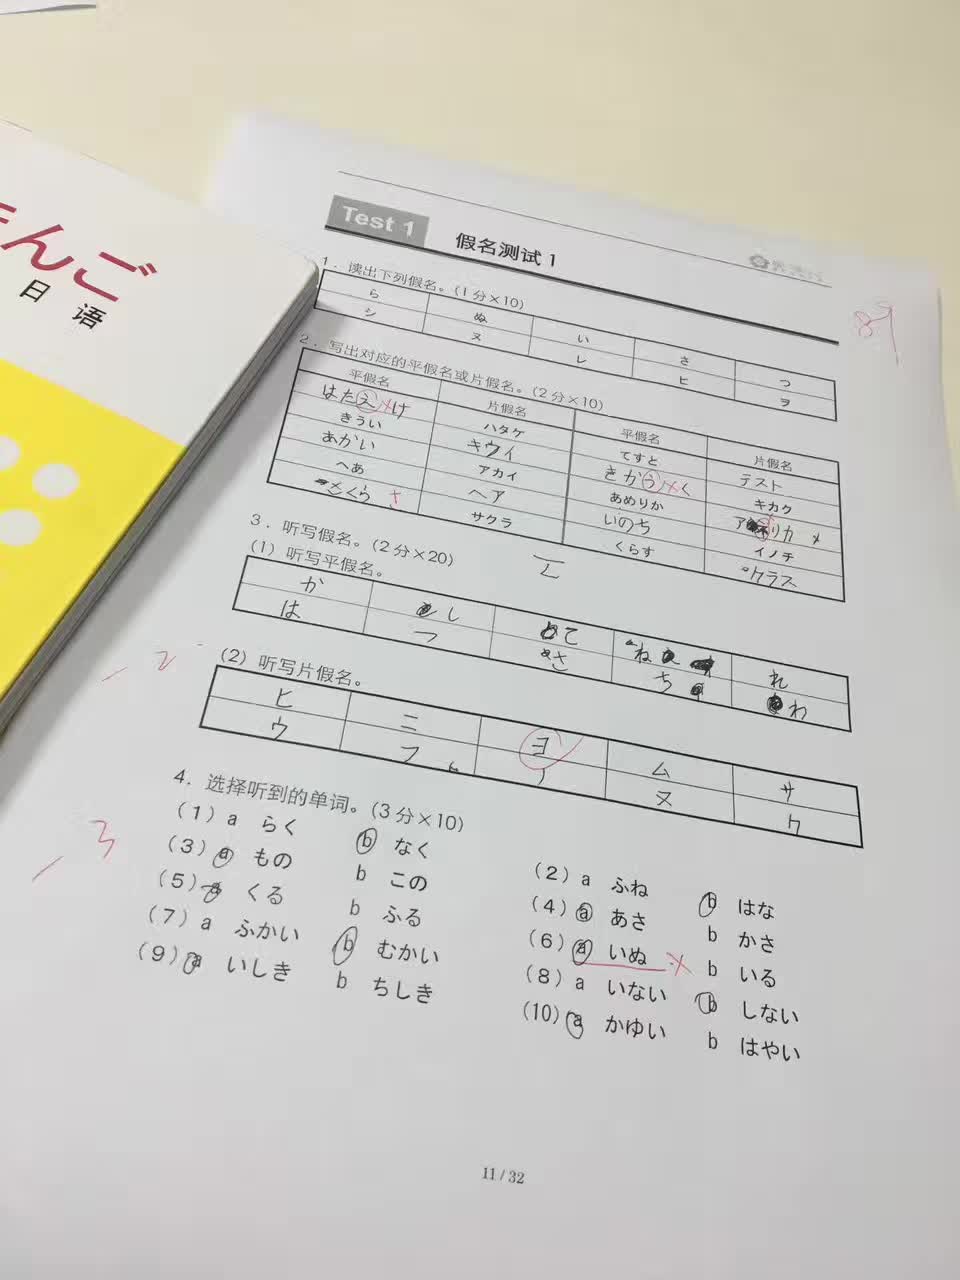 ほんご
日语
Test 1 假名测试1
89
1. 读出下列假名。(1分×10)
ら ぬ い さ つ
シ ヌ レ ヒ ヲ
2. 写出对应的平假名或片假名。(2分×10)
平假名 片假名 平假名 片假名
はたえけ ハタケ てすと テスト
きうい キウイ きかうく キカク
あかい アカイ あめりか アメリカ
へあ ヘア いのち イノチ
さくら サクラ くらす クラス
3. 听写假名。(2分×20)
(1) 听写平假名。
か し て ね れ
は つ さ ち わ
-2
(2) 听写片假名。
ヒ ニ ヨ ム サ
ウ フ ノ ヌ ケ
4. 选择听到的单词。(3分×10)
-3
(1) a らく b なく (2) a ふね b はな
(3) a もの b この (4) a あさ b かさ
(5) a くる b ふる (6) a いぬ b いる
(7) a ふかい b むかい (8) a いない b しない
(9) a いしき b ちしき (10) a かゆい b はやい
11 / 32